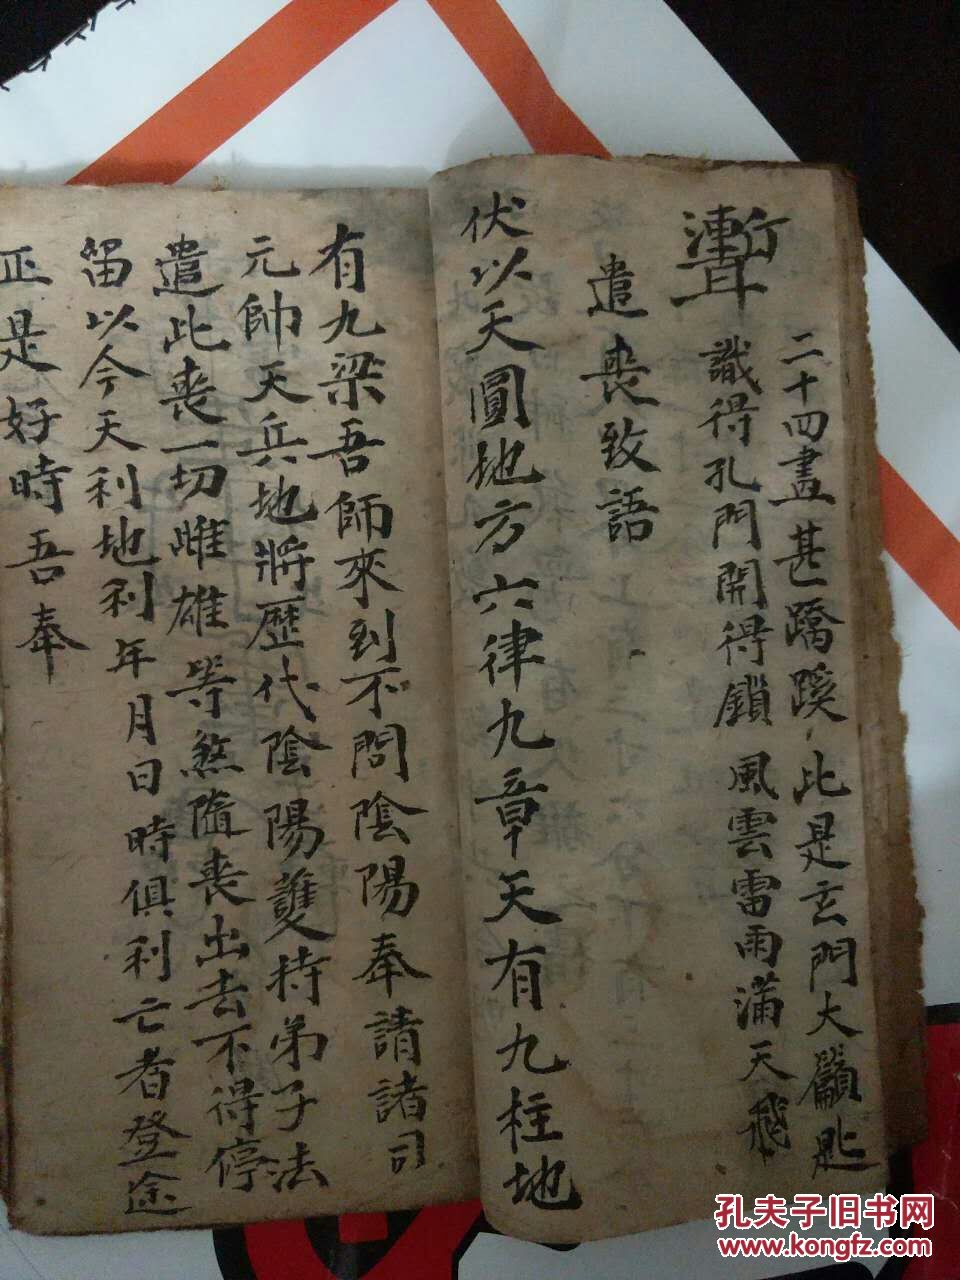 二十四畫甚蹺蹊此是玄門大鑰匙
識得孔門開得鎖風雲雷雨滿天飛
遣喪致語
伏以天圓地方六律九章天有九柱地
有九梁吾師來到不問陰陽奉請諸司
元帥天兵地將歷代陰陽護持弟子法
遣此喪一切雌雄等煞隨喪出去不得停
留以今天利地利年月日時俱利亡者登途
正是好時吾奉
孔夫子旧书网
www.kongfz.com